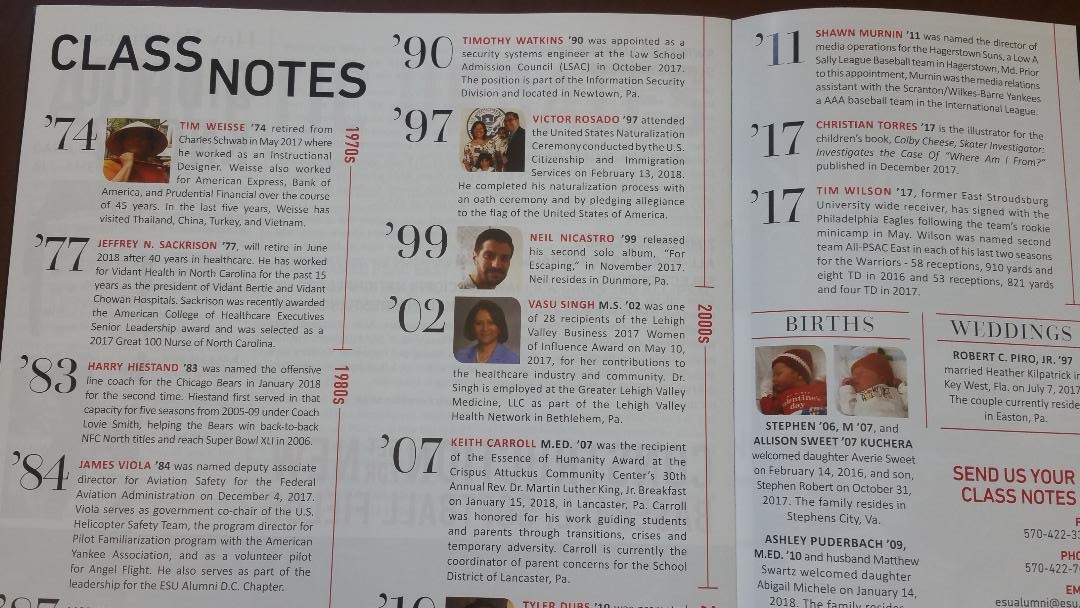 CLASS
NOTES
'74
TIM WEISSE '74 retired from
Charles Schwab in May 2017 where
he worked as an Instructional
Designer. Weisse also worked
for American Express, Bank of
America, and Prudential Financial over the course
of 45 years. In the last five years, Weisse has
visited Thailand, China, Turkey, and Vietnam.
1970s
'77
JEFFREY N. SACKRISON '77, will retire in June
2018 after 40 years in healthcare. He has worked
for Vidant Health in North Carolina for the past 15
years as the president of Vidant Bertie and Vidant
Chowan Hospitals. Sackrison was recently awarded
the American College of Healthcare Executives
Senior Leadership award and was selected as a
2017 Great 100 Nurse of North Carolina.
'83
HARRY HIESTAND '83 was named the offensive
line coach for the Chicago Bears in January 2018
for the second time. Hiestand first served in that
capacity for five seasons from 2005-09 under Coach
Lovie Smith, helping the Bears win back-to-back
NFC North titles and reach Super Bowl XLI in 2006.
1980s
'84
JAMES VIOLA '84 was named deputy associate
director for Aviation Safety for the Federal
Aviation Administration on December 4, 2017.
Viola serves as government co-chair of the U.S.
Helicopter Safety Team, the program director for
Pilot Familiarization program with the American
Yankee Association, and as a volunteer pilot
for Angel Flight. He also serves as part of the
leadership for the ESU Alumni D.C. Chapter.
'90
TIMOTHY WATKINS '90 was appointed as a
security systems engineer at the Law School
Admission Council (LSAC) in October 2017.
The position is part of the Information Security
Division and located in Newtown, Pa.
'97
VICTOR ROSADO '97 attended
the United States Naturalization
Ceremony conducted by the U.S.
Citizenship and Immigration
Services on February 13, 2018.
He completed his naturalization process with
an oath ceremony and by pledging allegiance
to the flag of the United States of America.
'99
NEIL NICASTRO '99 released
his second solo album, "For
Escaping," in November 2017.
Neil resides in Dunmore, Pa.
2000s
'02
VASU SINGH M.S. '02 was one
of 28 recipients of the Lehigh
Valley Business 2017 Women
of Influence Award on May 10,
2017, for her contributions to
the healthcare industry and community. Dr.
Singh is employed at the Greater Lehigh Valley
Medicine, LLC as part of the Lehigh Valley
Health Network in Bethlehem, Pa.
'07
KEITH CARROLL M.ED. '07 was the recipient
of the Essence of Humanity Award at the
Crispus Attuckus Community Center's 30th
Annual Rev. Dr. Martin Luther King, Jr. Breakfast
on January 15, 2018, in Lancaster, Pa. Carroll
was honored for his work guiding students
and parents through transitions, crises and
temporary adversity. Carroll is currently the
coordinator of parent concerns for the School
District of Lancaster, Pa.
TYLER DUBS '10
'11
SHAWN MURNIN '11 was named the director of
media operations for the Hagerstown Suns, a Low A
Sally League Baseball team in Hagerstown, Md. Prior
to this appointment, Murnin was the media relations
assistant with the Scranton/Wilkes-Barre Yankees
a AAA baseball team in the International League.
'17
CHRISTIAN TORRES '17 is the illustrator for the
children's book, Colby Cheese, Skater Investigator:
Investigates the Case Of "Where Am I From?"
published in December 2017.
'17
TIM WILSON '17, former East Stroudsburg
University wide receiver, has signed with the
Philadelphia Eagles following the team's rookie
minicamp in May. Wilson was named second
team All-PSAC East in each of his last two seasons
for the Warriors - 58 receptions, 910 yards and
eight TD in 2016 and 53 receptions, 821 yards
and four TD in 2017.
BIRTHS
STEPHEN '06, M '07, and
ALLISON SWEET '07 KUCHERA
welcomed daughter Averie Sweet
on February 14, 2016, and son,
Stephen Robert on October 31,
2017. The family resides in
Stephens City, Va.
ASHLEY PUDERBACH '09,
M.ED. '10 and husband Matthew
Swartz welcomed daughter
Abigail Michele on January 14,
2018. The family resides
WEDDINGS
ROBERT C. PIRO, JR. '97
married Heather Kilpatrick in
Key West, Fla. on July 7, 2017
The couple currently reside
in Easton, Pa.
SEND US YOUR
CLASS NOTES
570-422-33
PHO
570-422-70
EM
esualumni@esu